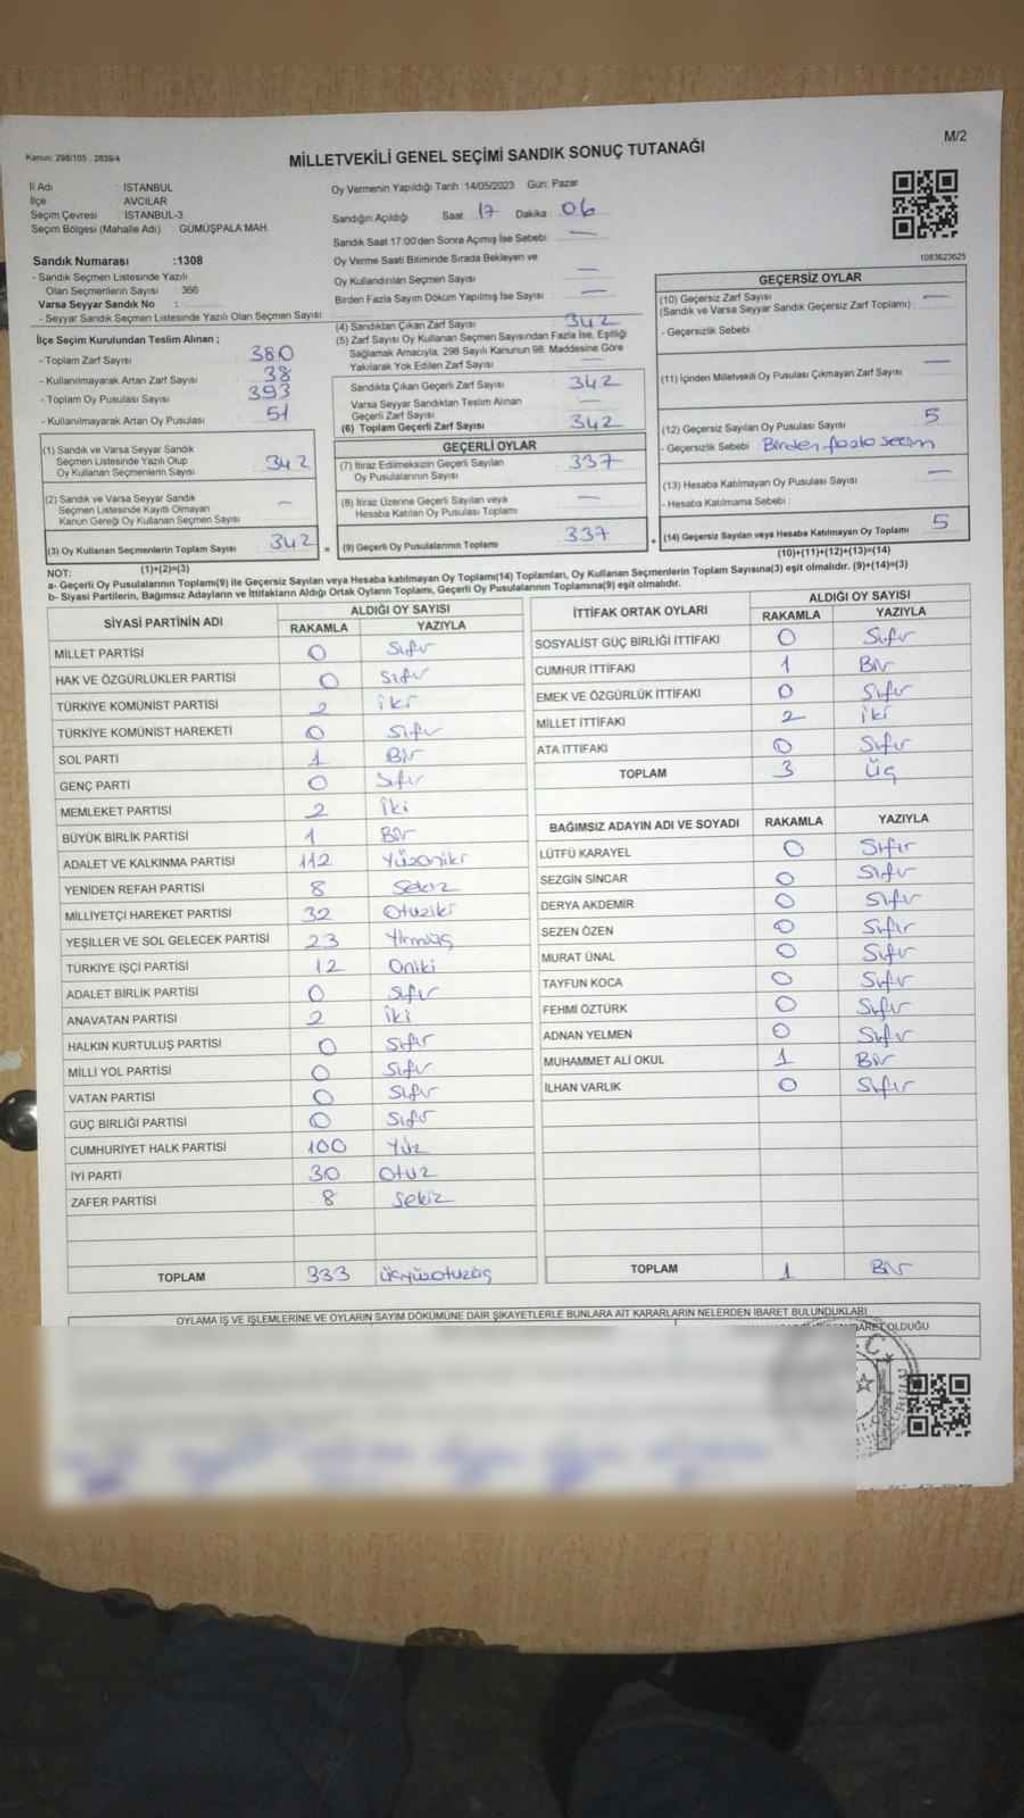 M/2
Kanun: 298/105 - 2839/4
MİLLETVEKİLİ GENEL SEÇİMİ SANDIK SONUÇ TUTANAĞI
İl Adı : İSTANBUL
İlçe : AVCILAR
Seçim Çevresi : İSTANBUL-3
Seçim Bölgesi (Mahalle Adı) : GÜMÜŞPALA MAH.
Sandık Numarası :1308
- Sandık Seçmen Listesinde Yazılı
Olan Seçmenlerin Sayısı : 366
Varsa Seyyar Sandık No :
- Seyyar Sandık Seçmen Listesinde Yazılı Olan Seçmen Sayısı
İlçe Seçim Kurulundan Teslim Alınan ;
- Toplam Zarf Sayısı 380
- Kullanılmayarak Artan Zarf Sayısı 38
- Toplam Oy Pusulası Sayısı 393
- Kullanılmayarak Artan Oy Pusulası 51
(1) Sandık ve Varsa Seyyar Sandık
Seçmen Listesinde Yazılı Olup
Oy Kullanan Seçmenlerin Sayısı 342
(2) Sandık ve Varsa Seyyar Sandık
Seçmen Listesinde Kayıtlı Olmayan
Kanun Gereği Oy Kullanan Seçmen Sayısı —
(3) Oy Kullanan Seçmenlerin Toplam Sayısı 342
(1)+(2)=(3)
Oy Vermenin Yapıldığı Tarih :14/05/2023 Gün: Pazar
Sandığın Açıldığı Saat 17 Dakika 06
Sandık Saat 17:00'den Sonra Açımış İse Sebebi: —
Oy Verme Saati Bitiminde Sırada Bekleyen ve
Oy Kullandırılan Seçmen Sayısı —
Birden Fazla Sayım Döküm Yapılmış İse Sayısı —
(4) Sandıktan Çıkan Zarf Sayısı 342
(5) Zarf Sayısı Oy Kullanan Seçmen Sayısından Fazla İse, Eşitliği
Sağlamak Amacıyla, 298 Sayılı Kanunun 98. Maddesine Göre
Yakılarak Yok Edilen Zarf Sayısı
Sandıkta Çıkan Geçerli Zarf Sayısı 342
Varsa Seyyar Sandıktan Teslim Alınan
Geçerli Zarf Sayısı —
(6) Toplam Geçerli Zarf Sayısı 342
GEÇERLİ OYLAR
(7) İtiraz Edilmeksizin Geçerli Sayılan
Oy Pusulalarının Sayısı 337
(8) İtiraz Üzerine Geçerli Sayılan veya
Hesaba Katılan Oy Pusulası Toplamı —
(9) Geçerli Oy Pusulalarının Toplamı 337
1083623625
GEÇERSİZ OYLAR
(10) Geçersiz Zarf Sayısı
(Sandık ve Varsa Seyyar Sandık Geçersiz Zarf Toplamı) : —
- Geçersizlik Sebebi
(11) İçinden Milletvekili Oy Pusulası Çıkmayan Zarf Sayısı —
(12) Geçersiz Sayılan Oy Pusulası Sayısı 5
- Geçersizlik Sebebi Birden fazla seçim
(13) Hesaba Katılmayan Oy Pusulası Sayısı —
- Hesaba Katılmama Sebebi :
(14) Geçersiz Sayılan veya Hesaba Katılmayan Oy Toplamı 5
(10)+(11)+(12)+(13)=(14)
NOT:
a- Geçerli Oy Pusulalarının Toplamı(9) ile Geçersiz Sayılan veya Hesaba katılmayan Oy Toplamı(14) Toplamları, Oy Kullanan Seçmenlerin Toplam Sayısına(3) eşit olmalıdır. (9)+(14)=(3)
b- Siyasi Partilerin, Bağımsız Adayların ve İttifakların Aldığı Ortak Oyların Toplamı, Geçerli Oy Pusulalarının Toplamına(9) eşit olmalıdır.
SİYASİ PARTİNİN ADI ALDIĞI OY SAYISI
RAKAMLA YAZIYLA
MİLLET PARTİSİ 0 Sıfır
HAK VE ÖZGÜRLÜKLER PARTİSİ 0 Sıfır
TÜRKİYE KOMÜNİST PARTİSİ 2 iki
TÜRKİYE KOMÜNİST HAREKETİ 0 Sıfır
SOL PARTİ 1 Bir
GENÇ PARTİ 0 Sıfır
MEMLEKET PARTİSİ 2 İki
BÜYÜK BİRLİK PARTİSİ 1 Bir
ADALET VE KALKINMA PARTİSİ 112 Yüzoniki
YENİDEN REFAH PARTİSİ 8 Sekiz
MİLLİYETÇİ HAREKET PARTİSİ 32 Otuziki
YEŞİLLER VE SOL GELECEK PARTİSİ 23 Yirmiüç
TÜRKİYE İŞÇİ PARTİSİ 12 Oniki
ADALET BİRLİK PARTİSİ 0 Sıfır
ANAVATAN PARTİSİ 2 iki
HALKIN KURTULUŞ PARTİSİ 0 Sıfır
MİLLİ YOL PARTİSİ 0 Sıfır
VATAN PARTİSİ 0 Sıfır
GÜÇ BİRLİĞİ PARTİSİ 0 Sıfır
CUMHURİYET HALK PARTİSİ 100 Yüz
İYİ PARTİ 30 Otuz
ZAFER PARTİSİ 8 Sekiz
TOPLAM 333 üçyüzotuzüç
İTTİFAK ORTAK OYLARI ALDIĞI OY SAYISI
RAKAMLA YAZIYLA
SOSYALİST GÜÇ BİRLİĞİ İTTİFAKI 0 Sıfır
CUMHUR İTTİFAKI 1 Bir
EMEK VE ÖZGÜRLÜK İTTİFAKI 0 Sıfır
MİLLET İTTİFAKI 2 iki
ATA İTTİFAKI 0 Sıfır
TOPLAM 3 Üç
BAĞIMSIZ ADAYIN ADI VE SOYADI RAKAMLA YAZIYLA
LÜTFÜ KARAYEL 0 Sıfır
SEZGİN SİNCAR 0 Sıfır
DERYA AKDEMİR 0 Sıfır
SEZEN ÖZEN 0 Sıfır
MURAT ÜNAL 0 Sıfır
TAYFUN KOCA 0 Sıfır
FEHMİ ÖZTÜRK 0 Sıfır
ADNAN YELMEN 0 Sıfır
MUHAMMET ALİ OKUL 1 Bir
İLHAN VARLIK 0 Sıfır
TOPLAM 1 Bir
OYLAMA İŞ VE İŞLEMLERİNE VE OYLARIN SAYIM DÖKÜMÜNE DAİR ŞİKAYETLERLE BUNLARA AİT KARARLARIN NELERDEN İBARET BULUNDUKLARI
OLDUĞU